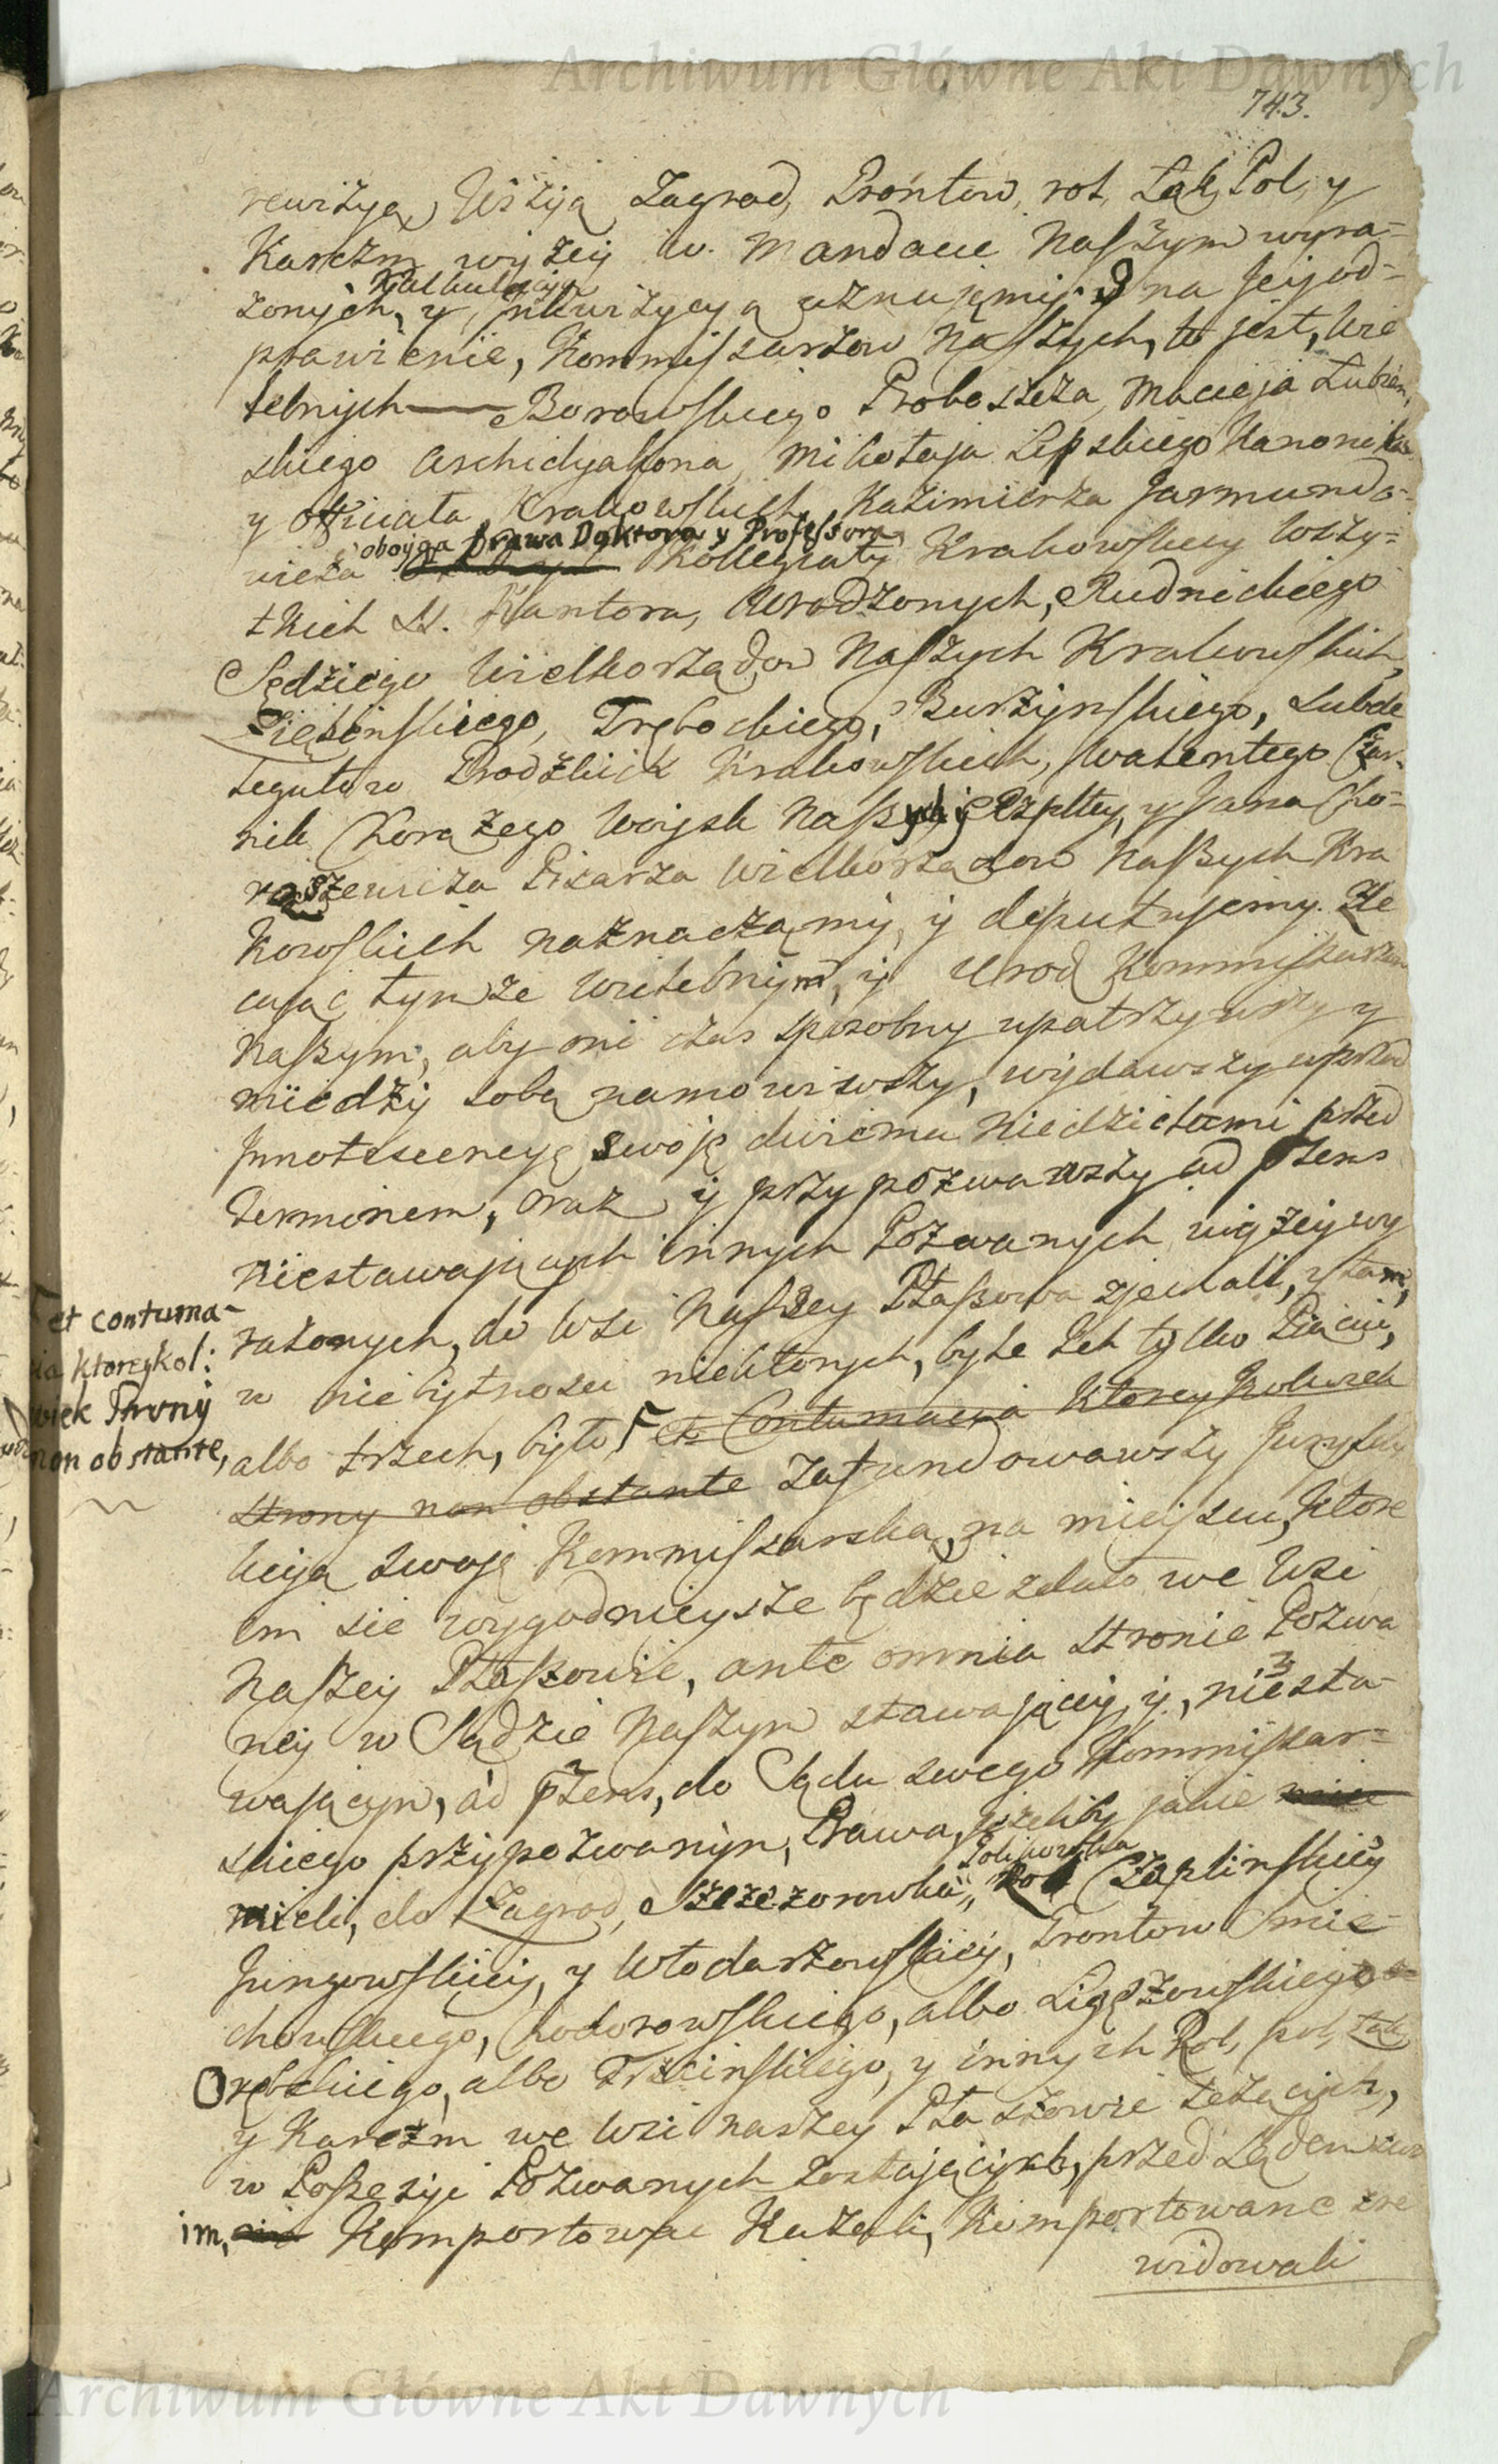 Archiwum Główne Akt Dawnych
743.
rewizyą, Wizyą Zagrod, Prontow, rol, Łąk, Pol, y
Karczm wyżey w Mandacie Naszym wyra-
Kalkulacyą
żonych, y, inkwizycyą uznajęmy. I na Jey od-
prawienie, Kommissarzow Naszych, to jest, Wie
lebnych — Borowskiego Proboszcza, Macieja Łubień,
skiego Archidyakona, Mikołaja Lipskiego Kanonika
y Officiała Krakowskich, Kazimierza Jarmundo-
oboyga Prawa Doktora y Professora
wicza Kollegiaty Krakowskiey Wszy-
tkich SS. Kantora, Urodzonych, Rudnickiego
Sędziego Wielkorządow Naszych Krakowskich,
Ziębinskiego, Trębeckiego, Burzynskiego, Subde
legatow Grodzkich Krakowskich, Walentego Czar-
nik Chorążego Woysk Naszych y Rzpltey, y Jana Cho-
rąszewicza Pisarza Wielkorządow Naszych Kra
kowskich naznaczamy, y deputujemy. Zle
cając tymże Wielebnym, y Urod Kommissarzom
Naszym, aby oni czas sposobny upatrzywszy y
między sobą namowiwszy, wydawszy wprzod
Innotescencyę swoję dwiema Niedzielami przed
Terminem, oraz y przypozwawszy ad pzens
niestawających innych Pozwanych wyżey wy
rażonych, do Wsi Naszey Płaszowa zjechali, y tam,
w niebytnosci niektorych, byle ich tylko Pięciu,
albo trzech, było, et Contumacia ktoreykolwiek
et contuma-
cia ktoreykol:
wiek Strony
non obstante,
Strony non obstante zafundowawszy Juryzdy
kcyą swoję Kommissarską, na mieyscu, ktore
im się wygodnieysze będzie zdało we Wsi
Naszey Płaszowie, ante omnia stronie Pozwa
ney w Sądzie Naszym stawającey, y, niesta-
wającym, ad pzens, do Sądu swego Kommissar-
skiego przypozwanym, Prawa, jeżeliby jakie
mieli, do Zagrod, Szczezorowka, Rol Czaplinskiey
Jungowskiey, y Włodarzowskiey, Prontow Smie-
chowskiego, Chodorowskiego, albo Ligęzowskiego
Orębskiego, albo Trzcinskiego, y innych Rol, pol, Łąk,
y Karczm we Wsi naszey Płaszowie leżących,
w Possesyi Pozwanych zostających, przed Sądem swo
im, Komportować kazali, Komportowane zre
widowali
Archiwum Główne Akt Dawnych